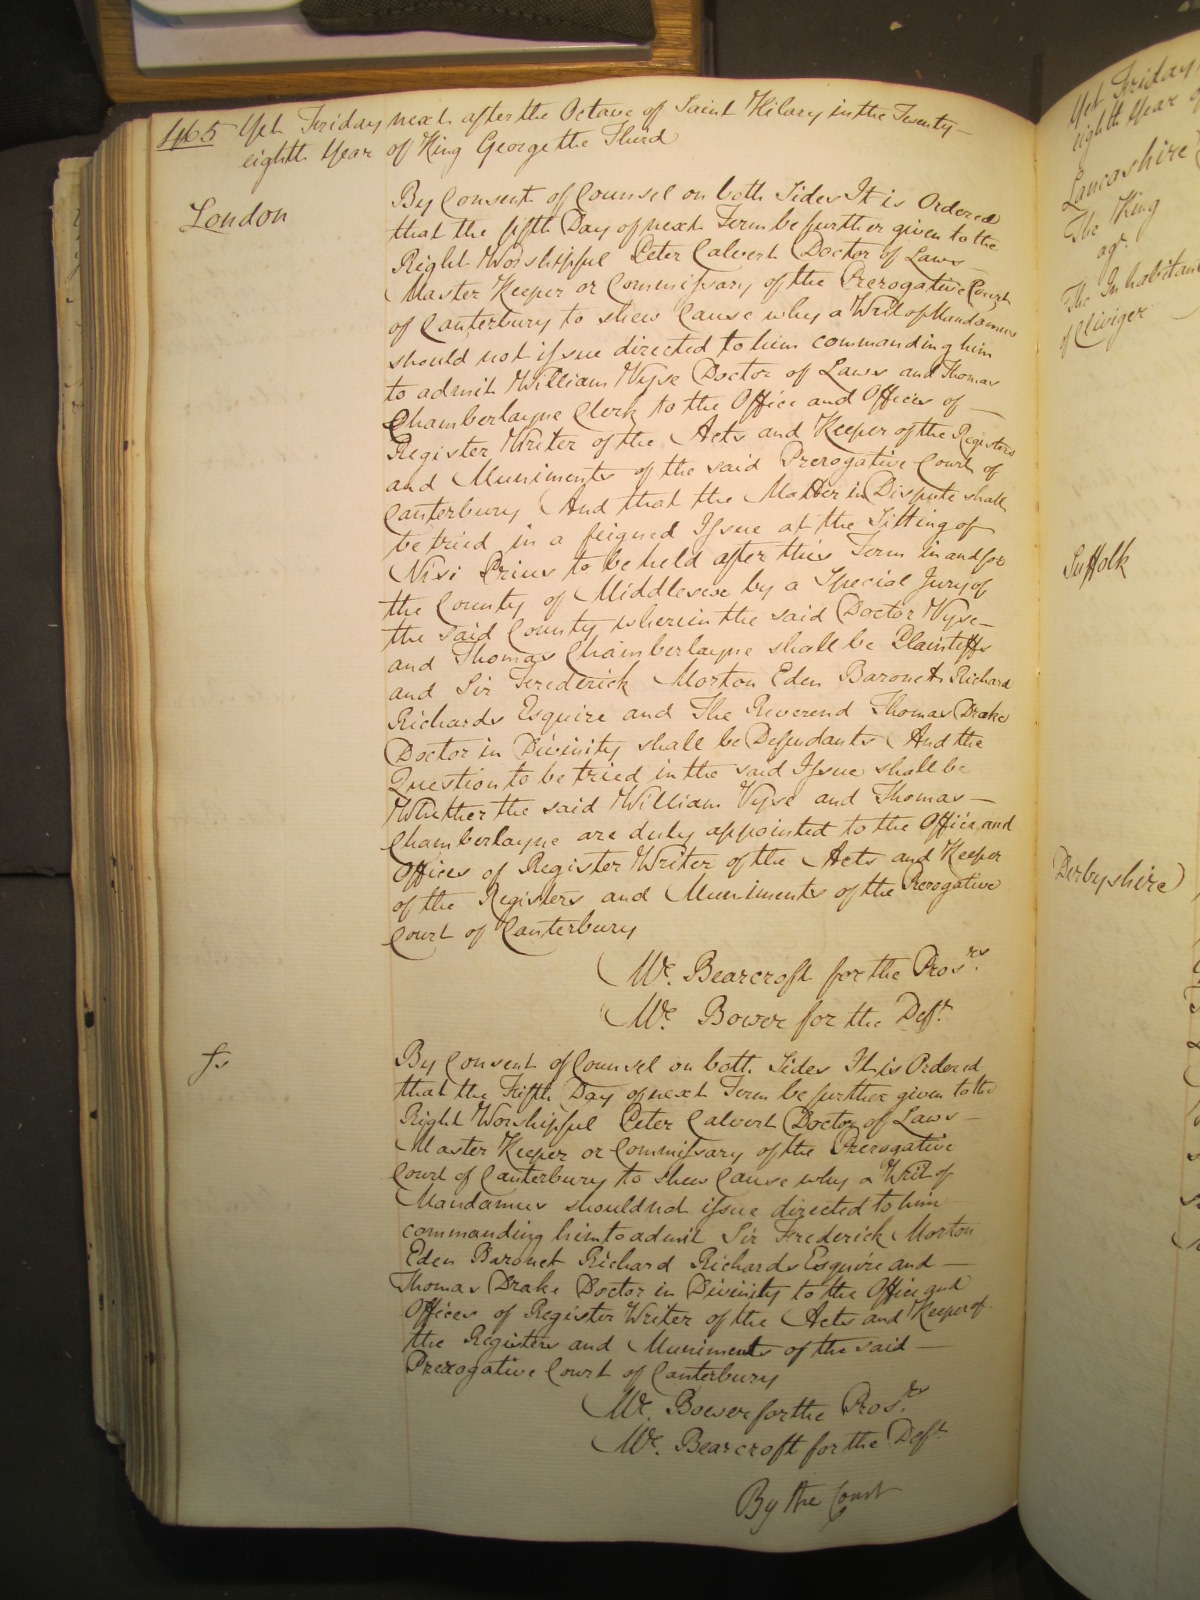 1465 Yet Friday next after the Octave of Saint Hilary in the Twenty-
eighth Year of King George the Third
London
By Consent of Counsel on both Sides It is Ordered
that the fifth Day of next Term be further given to the
Right Worshipful Peter Calvert Doctor of Laws
Master Keeper or Commissary of the Prerogative Court
of Canterbury to shew Cause why a Writ of Mandamus
should not issue directed to him commanding him
to admit William Vyse Doctor of Laws and Thomas
Chamberlayne Clerk to the Office and Offices of —
Register Writer of the Acts and Keeper of the Registers
and Muniments of the said Prerogative Court of
Canterbury And that the Matter in Dispute shall
be tried in a feigned Issue at the Sitting of
Nisi Prius to be held after this Term in and for
the County of Middlesex by a Special Jury of
the said County wherein the said Doctor Vyse —
and Thomas Chamberlayne shall be Plaintiffs
and Sir Frederick Morton Eden Baronet Richard
Richards Esquire and The Reverend Thomas Drake
Doctor in Divinity shall be Defendants And the
Question to be tried in the said Issue shall be
Whether the said William Vyse and Thomas —
Chamberlayne are duly appointed to the Office and
Offices of Register Writer of the Acts and Keeper
of the Registers and Muniments of the Prerogative
Court of Canterbury
Mr. Bearcroft for the Prosrs.
Mr. Bower for the Deft.
fs
By Consent of Counsel on both Sides It is Ordered
that the Fifth Day of next Term be further given to the
Right Worshipful Peter Calvert Doctor of Laws —
Master Keeper or Commissary of the Prerogative
Court of Canterbury to shew Cause why a Writ of
Mandamus should not issue directed to him
commanding him to admit Sir Frederick Morton
Eden Baronet Richard Richards Esquire and —
Thomas Drake Doctor in Divinity to the Office and
Offices of Register Writer of the Acts and Keeper of
the Registers and Muniments of the said —
Prerogative Court of Canterbury
Mr. Bower for the Prosrs.
Mr. Bearcroft for the Deft.
By the Court
Yet Friday
eighth Year of
Lancashire
The King
agt.
The Inhabitants
of Cliviger
Suffolk
Derbyshire